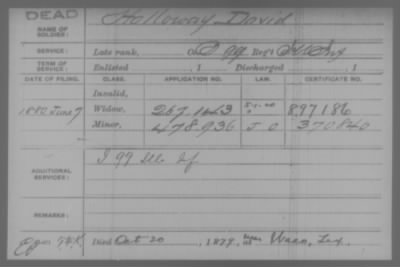 DEAD
Holloway, David
NAME OF
SOLDIER:
SERVICE:
Late rank, Co. Reg't
TERM OF
SERVICE:
Enlisted , 1 Discharged , 1
DATE OF FILING. CLASS. APPLICATION NO. LAW. CERTIFICATE NO.
Invalid,
1880 June 7 Widow. 267.143 897186
Minor. 478.936 J O 370840
ADDITIONAL
SERVICES:
I 99 Ill. Inf
REMARKS:
Died Oct 20, 1879, at Waco, Tex.